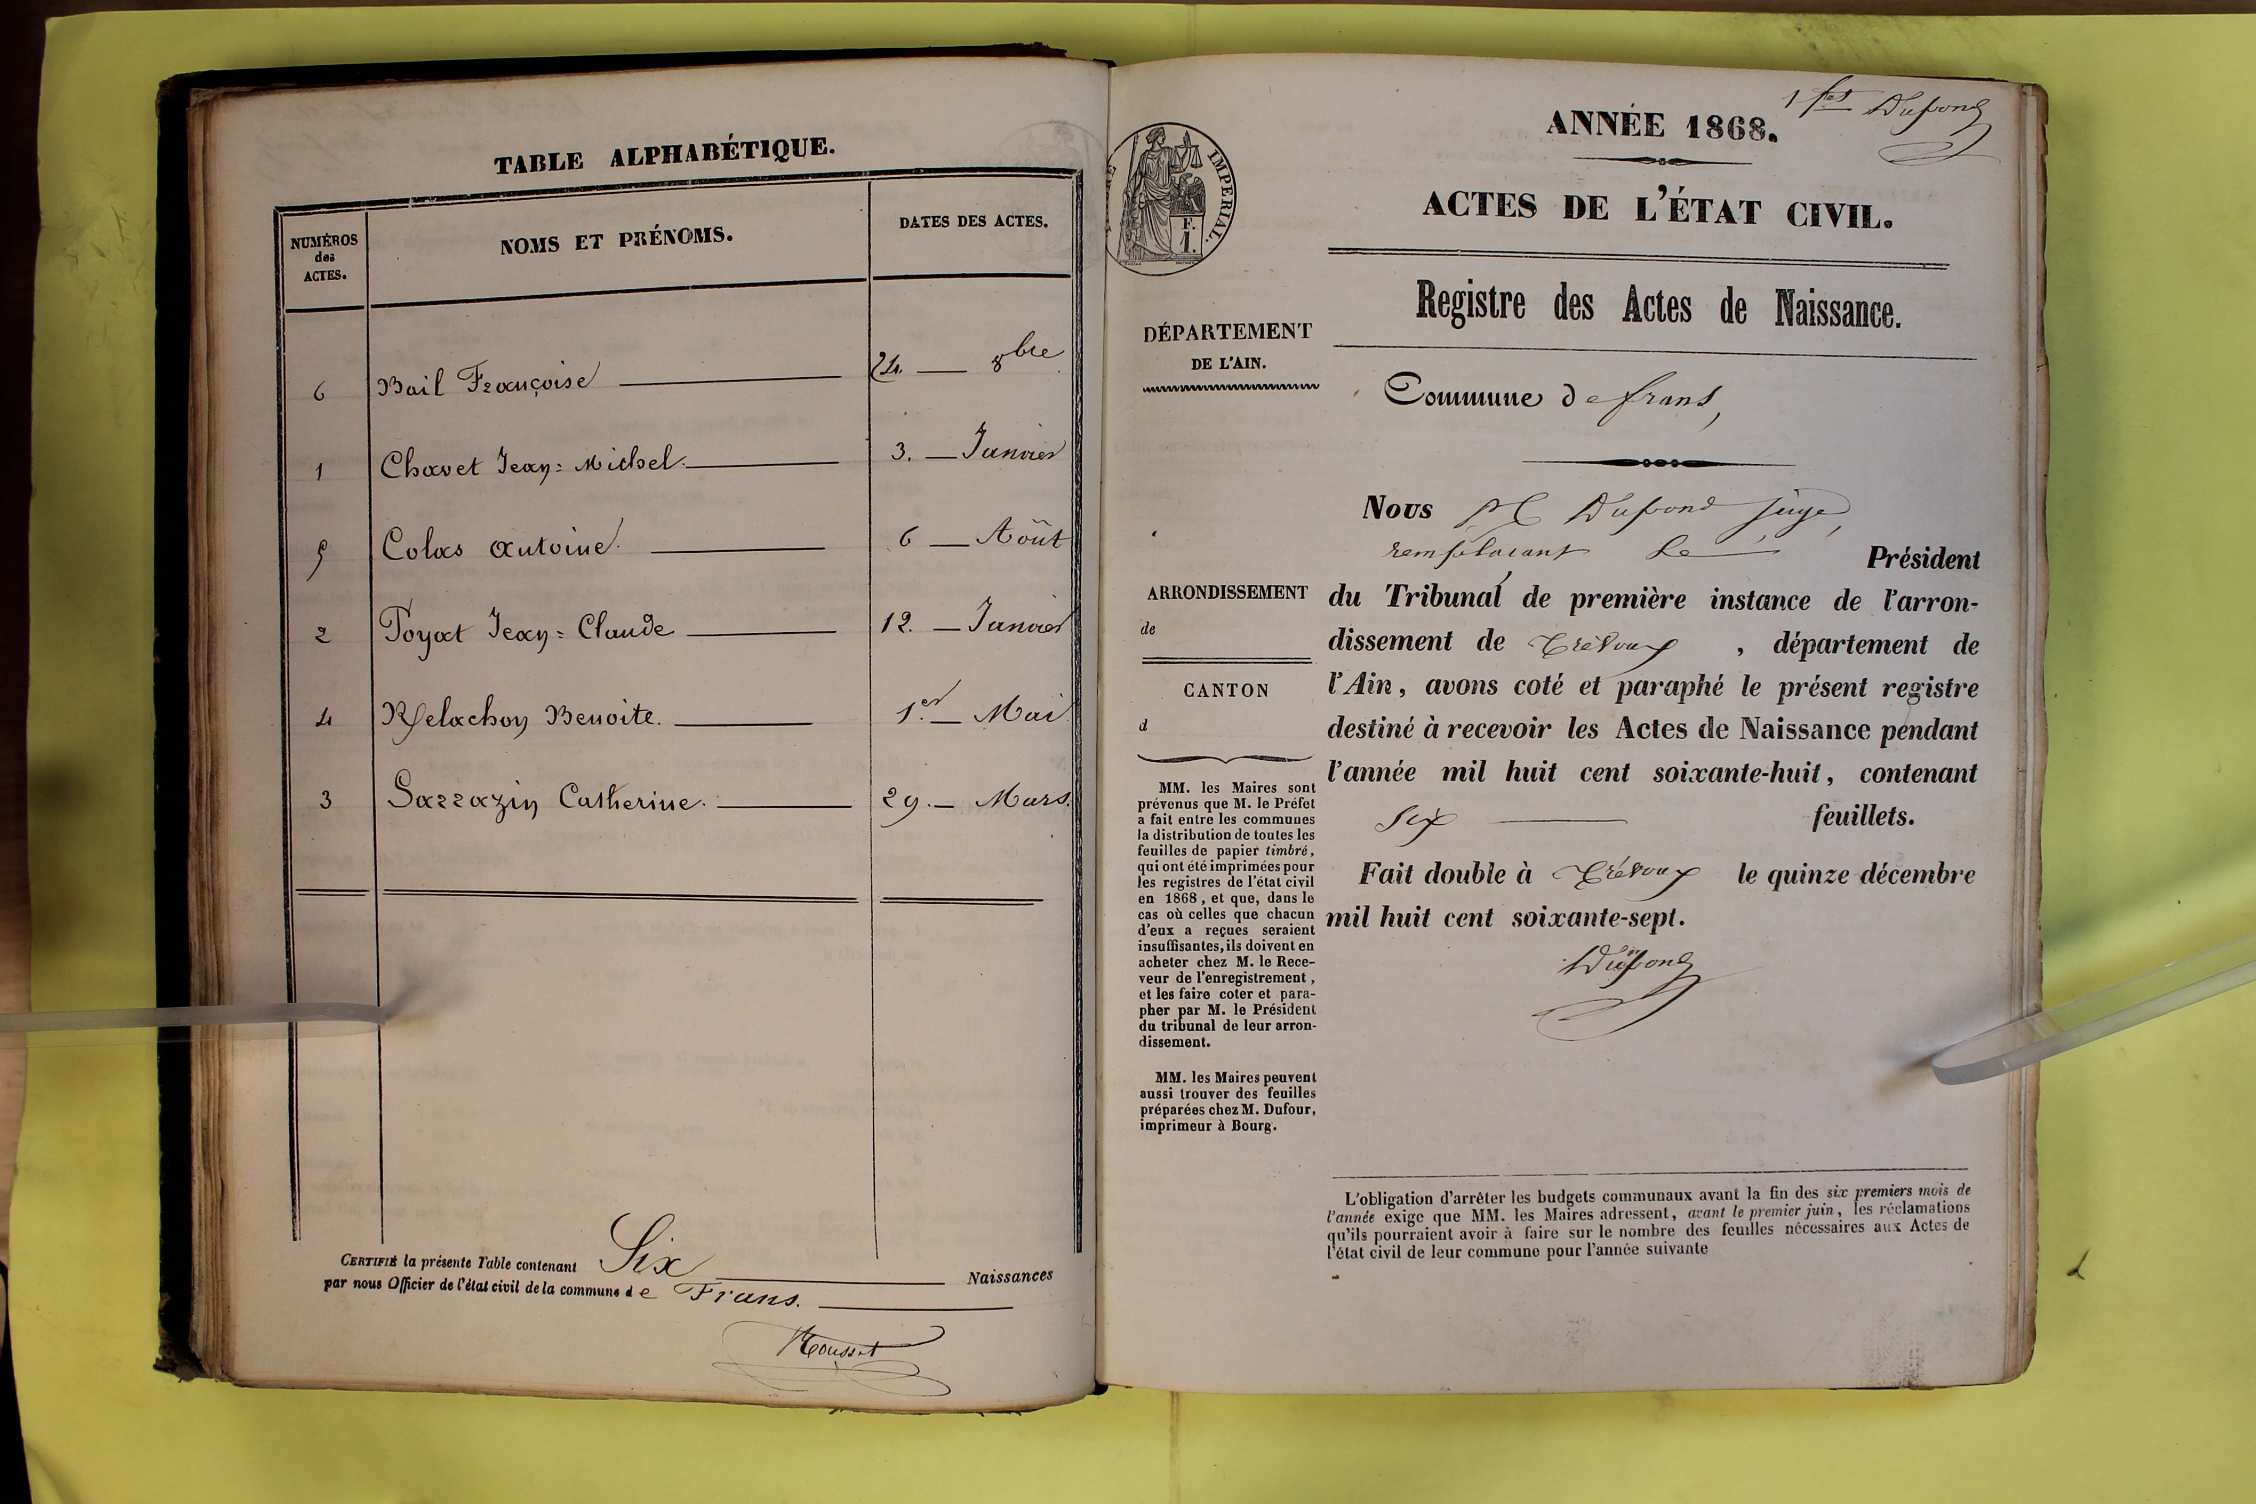 TABLE ALPHABÉTIQUE.
NUMÉROS des ACTES.
NOMS ET PRÉNOMS.
DATES DES ACTES.
6 Bail Françoise 24 8bre
1 Chavet Jean=Michel. 3. Janvier
5 Colas Antoine. 6 Août
2 Poyat Jean=Claude 12. Janvier
4 Relachon Benoite. 1er Mai
3 Sarrazin Catherine. 29. Mars.
CERTIFIÉ la présente Table contenant Six Naissances
par nous Officier de l'état civil de la commune de Frans.
Rousset
1 fet Dupond
ANNÉE 1868.
ACTES DE L'ÉTAT CIVIL.
IMPERIAL.
F.
1.
Registre des Actes de Naissance.
DÉPARTEMENT
DE L'AIN.
Commune de frans,
Nous Dupond juge,
remplacant le Président
ARRONDISSEMENT
de
du Tribunal de première instance de l'arron-
dissement de Trévoux, département de
CANTON
d
l'Ain, avons coté et paraphé le présent registre
destiné à recevoir les Actes de Naissance pendant
l'année mil huit cent soixante-huit, contenant
six feuillets.
Fait double à Trévoux le quinze décembre
mil huit cent soixante-sept.
Dupond
MM. les Maires sont
prévenus que M. le Préfet
a fait entre les communes
la distribution de toutes les
feuilles de papier timbré,
qui ont été imprimées pour
les registres de l'état civil
en 1868, et que, dans le
cas où celles que chacun
d'eux a reçues seraient
insuffisantes, ils doivent en
acheter chez M. le Rece-
veur de l'enregistrement,
et les faire coter et para-
pher par M. le Président
du tribunal de leur arron-
dissement.
MM. les Maires peuvent
aussi trouver des feuilles
préparées chez M. Dufour,
imprimeur à Bourg.
L'obligation d'arrêter les budgets communaux avant la fin des six premiers mois de
l'année exige que MM. les Maires adressent, avant le premier juin, les réclamations
qu'ils pourraient avoir à faire sur le nombre des feuilles nécessaires aux Actes de
l'état civil de leur commune pour l'année suivante